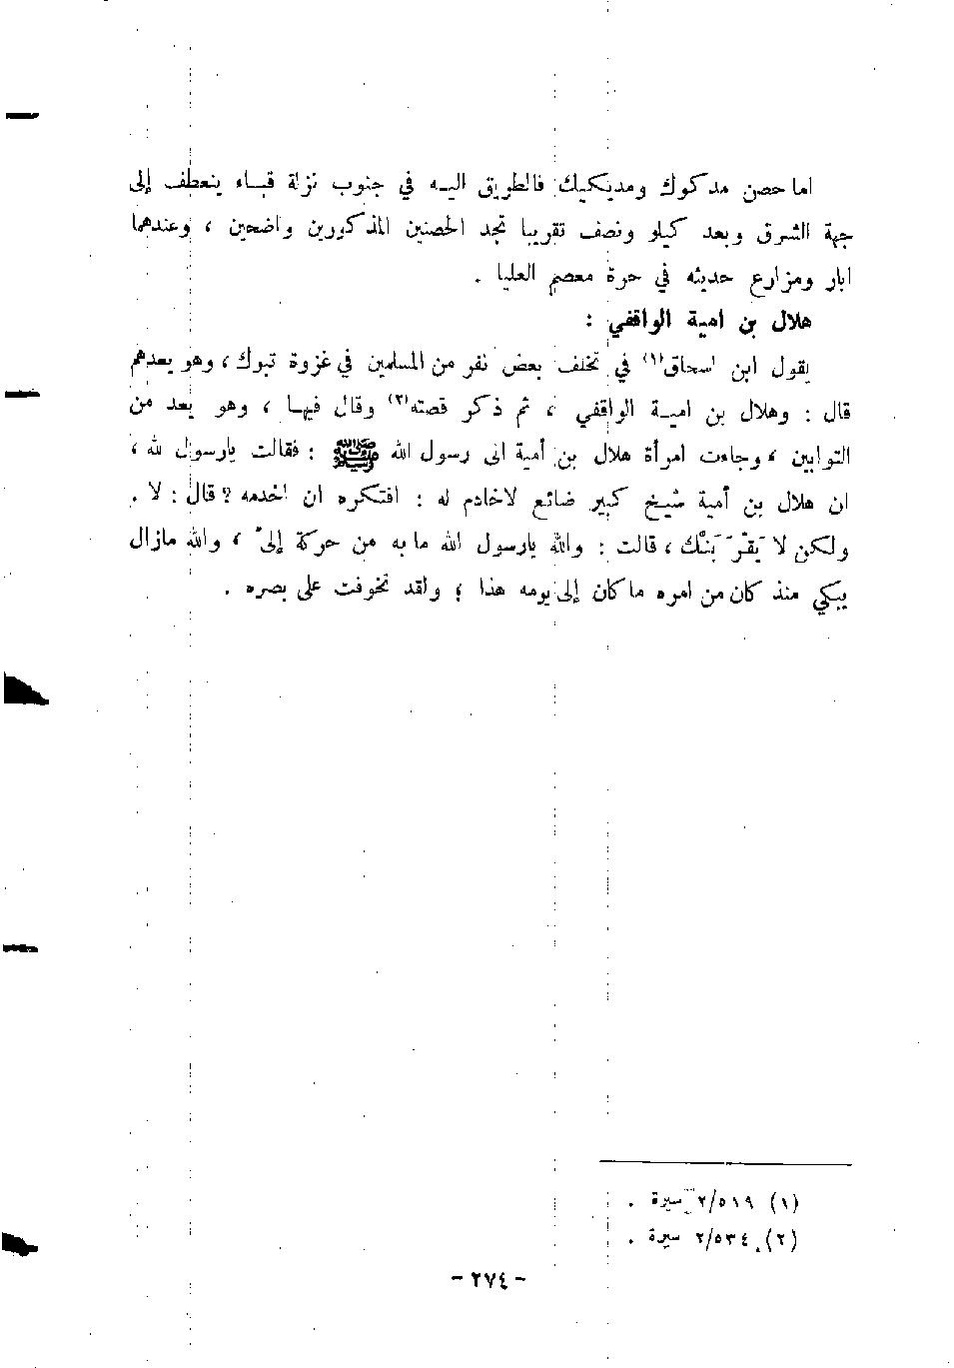 اما حصن مدكوك ومديكيك فالطريق اليه في جنوب نزلة قباء ينعطف إلى
جهة الشرق وبعد كيلو ونصف تقريبا تجد الحصنين المذكورين واضحين ، وعندهما
ابار ومزارع حديثه في حرة معصم العليا .
هلال بن امية الواقفي :
يقول ابن اسحاق(١) في تخلف بعض نفر من المسلمين في غزوة تبوك ، وهو يعدهم
قال : وهلال بن امية الواقفي ، ثم ذكر قصته(٢) وقال فيها ، وهو يعد من
التوابين ، وجاءت امرأة هلال بن أمية الى رسول الله ﷺ : فقالت يارسول الله ،
ان هلال بن أمية شيخ كبير ضائع لاخادم له : افتكره ان اخدمه ؟ قال : لا .
ولكن لا يَقْرَبَنَّك ، قالت : والله يارسول الله ما به من حركة إليّ ، والله مازال
يبكي منذ كان من امره ماكان إلى يومه هذا ؛ ولقد تخوفت على بصره .
(١) ٢/٥١٩ سيرة .
(٢) ٢/٥٣٤ سيرة .
- ٢٧٤ -